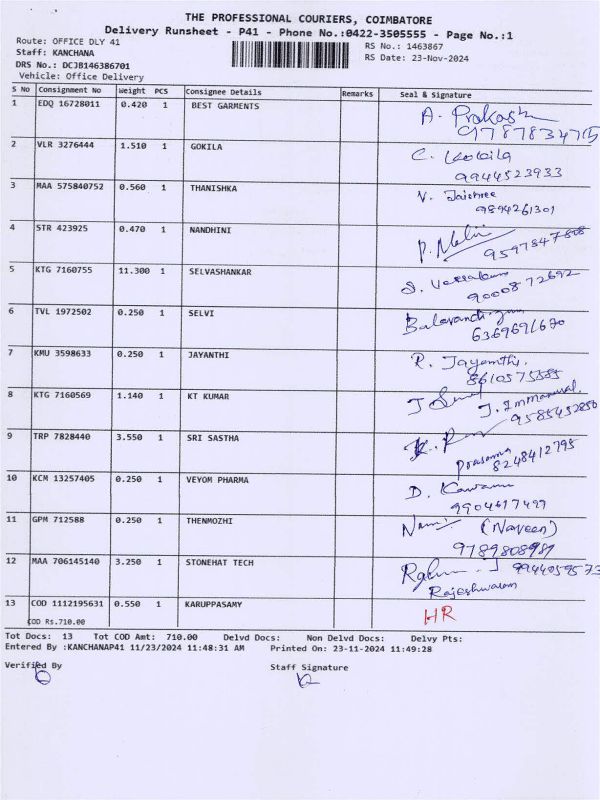 THE PROFESSIONAL COURIERS, COIMBATORE
Delivery Runsheet - P41 - Phone No.:0422-3505555 - Page No.:1
Route: OFFICE DLY 41 RS No.: 1463867
Staff: KANCHANA RS Date: 23-Nov-2024
DRS No.: DCJB146386701
Vehicle: Office Delivery
S No Consignment No Weight PCS Consignee Details Remarks Seal & Signature
1 EDQ 16728011 0.420 1 BEST GARMENTS A. Prakash
2 VLR 3276444 1.510 1 GOKILA C. Kokila
9944523933
3 MAA 575840752 0.560 1 THANISHKA V. Jaishree
9894261301
4 STR 423925 0.470 1 NANDHINI
5 KTG 7160755 11.300 1 SELVASHANKAR
9000872692
6 TVL 1972502 0.250 1 SELVI
7 KMU 3598633 0.250 1 JAYANTHI R. Jayanthi.
8610575585
8 KTG 7160569 1.140 1 KT KUMAR J. Immanuval
9585452850
9 TRP 7828440 3.550 1 SRI SASTHA
Prasanna
8248412795
10 KCM 13257405 0.250 1 VEYOM PHARMA
9904617499
11 GPM 712588 0.250 1 THENMOZHI (Naveen)
9789808989
12 MAA 706145140 3.250 1 STONEHAT TECH
Rajeshwaram
13 COD 1112195631 0.550 1 KARUPPASAMY HR
COD Rs.710.00
Tot Docs: 13 Tot COD Amt: 710.00 Delvd Docs: Non Delvd Docs: Delvy Pts:
Entered By :KANCHANAP41 11/23/2024 11:48:31 AM Printed On: 23-11-2024 11:49:28
Verified By Staff Signature